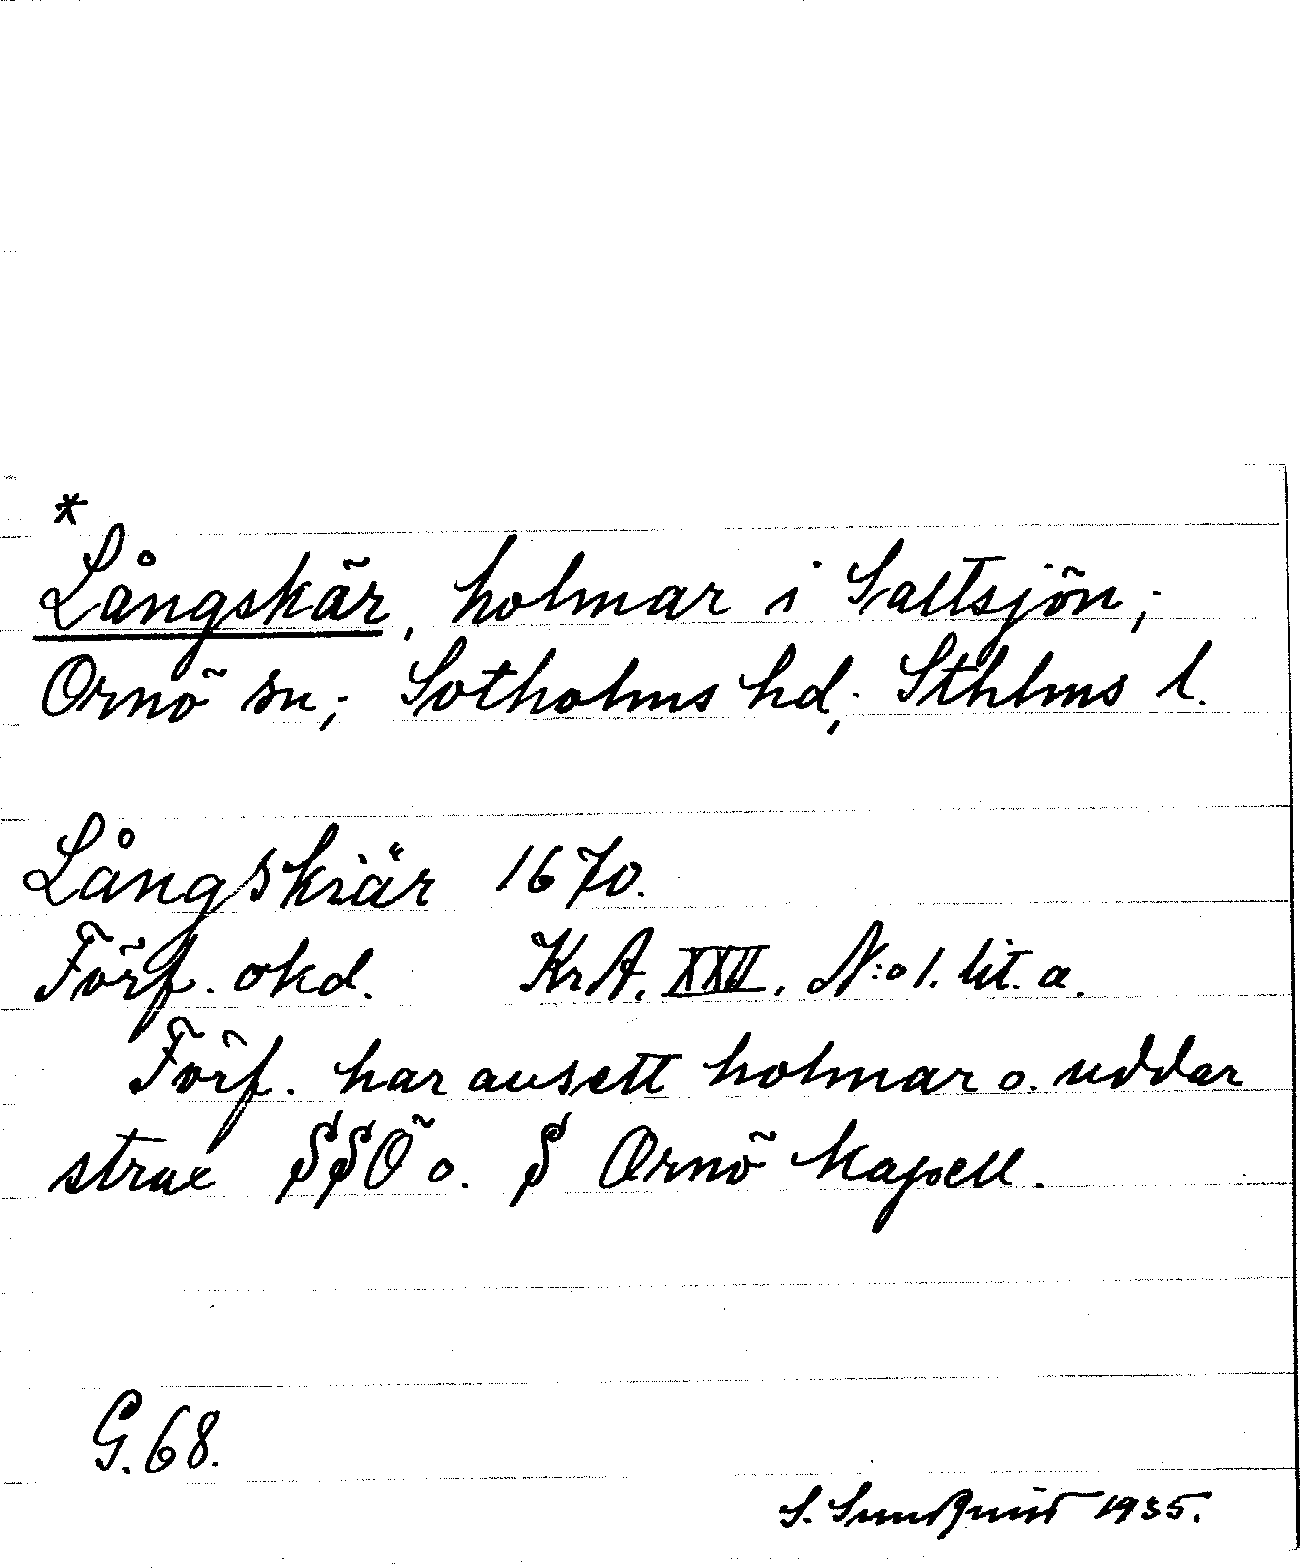 *
Långskär, holmar i Saltsjön;
Ornö sn; Sotholms hd; Sthlms l.
Långskiär 1670.
Förf. okd. KrA. XXII. N:o 1. lit. a.
Förf. har ansett holmar o. uddar
strax SSÖ o. S Ornö kapell.
G. 68.
S. Sundquist 1935.